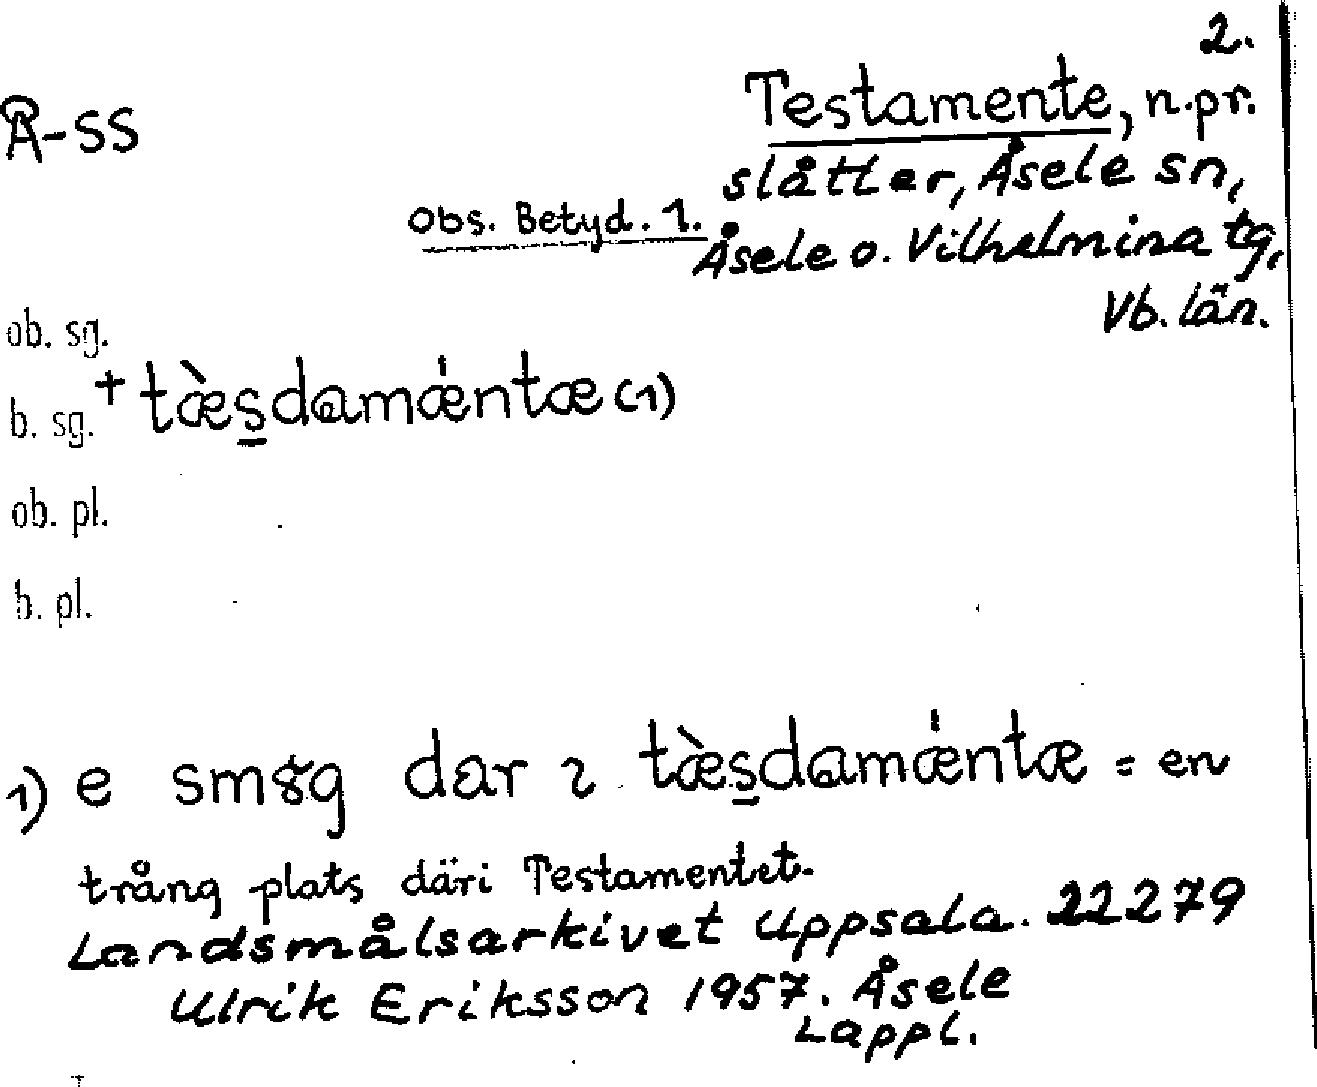 2.
Å-SS
Testamente, n.pr.
slåtter, Åsele sn,
Obs. Betyd. 1.
Åsele o. Vilhelmina tg,
Vb. län.
ob. sg.
b. sg. + tæ̀s̱damǽntæ (1)
ob. pl.
b. pl.
1) e smøg dar ɩ tæ̀s̱damǽntæ = en
trång plats däri Testamentet.
Landsmålsarkivet Uppsala. 22279
Ulrik Eriksson 1957. Åsele
Lappl.